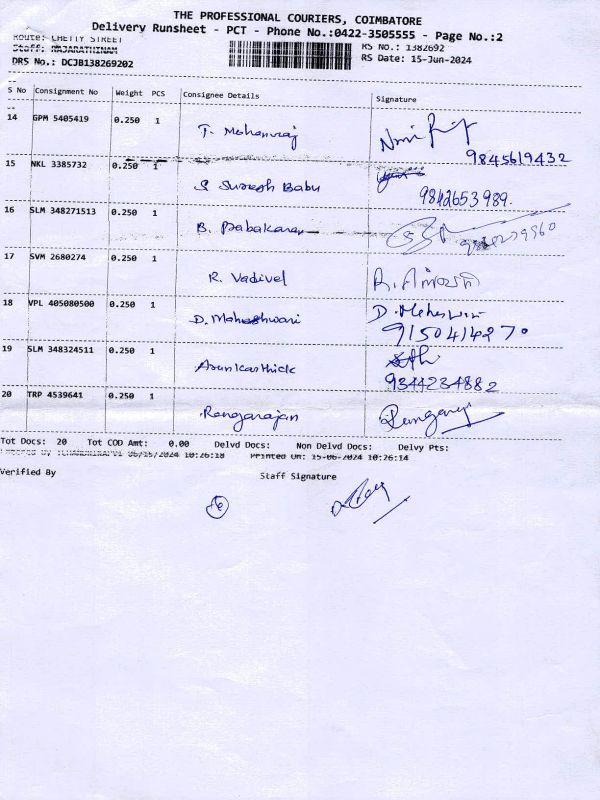 THE PROFESSIONAL COURIERS, COIMBATORE
Delivery Runsheet - PCT - Phone No.:0422-3505555 - Page No.:2
Route: CHETTY STREET RS No.: 1382692
Staff: RAJARATHINAM
DRS No.: DCJB138269202 RS Date: 15-Jun-2024
S No Consignment No Weight PCS Consignee Details Signature
14 GPM 5405419 0.250 1
T. Mohanraj
9845619432
15 NKL 3385732 0.250 1
S Suresh Babu
9842653989.
16 SLM 348271513 0.250 1
B. Pabakaran
17 SVM 2680274 0.250 1
R. Vadivel
18 VPL 405080500 0.250 1
D. Maheshwari D. Maheswari
9150414270
19 SLM 348324511 0.250 1
Arunkarthick
9344234882
20 TRP 4539641 0.250 1
Rengarajan
Tot Docs: 20 Tot COD Amt: 0.00 Delvd Docs: Non Delvd Docs: Delvy Pts:
06/15/2024 10:26:10 Printed On: 15-06-2024 10:26:14
Verified By Staff Signature